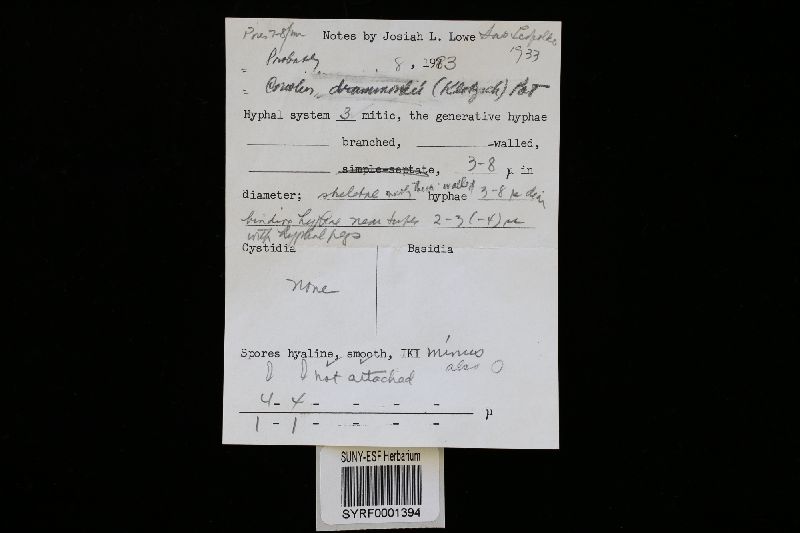 Pores 7-8/mm Notes by Josiah L. Lowe Sao Leopoldo
1933
Probably 8, 1983
Coriolus drummondii (Klotzsch) Pat
Hyphal system 3 mitic, the generative hyphae
branched, -walled,
simple-septate, 3-8 µ in
diameter; skeletal thick-walled hyphae 3-8 µ diam
binding hyphae near tubes 2-3(-4) µ
with hyphal pegs
Cystidia Basidia
none
Spores hyaline, smooth, IKI minus
not attached also
4- 4 - - - -
1 - 1 - - - - µ
SUNY-ESF Herbarium
SYRF0001394